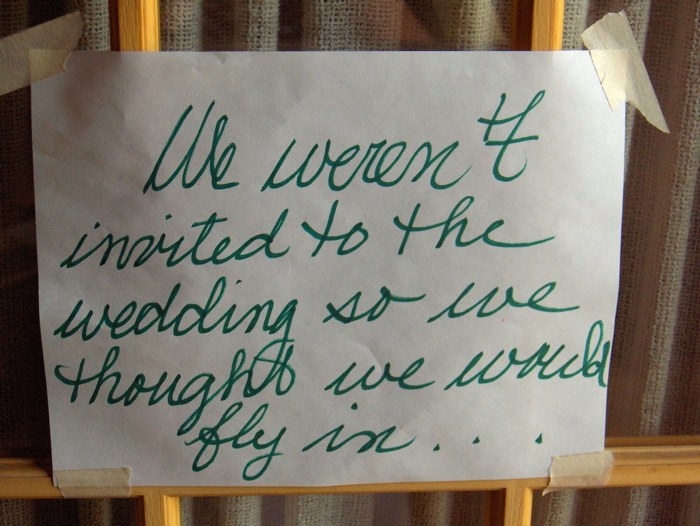 We weren't
invited to the
wedding so we
thought we would
fly in....